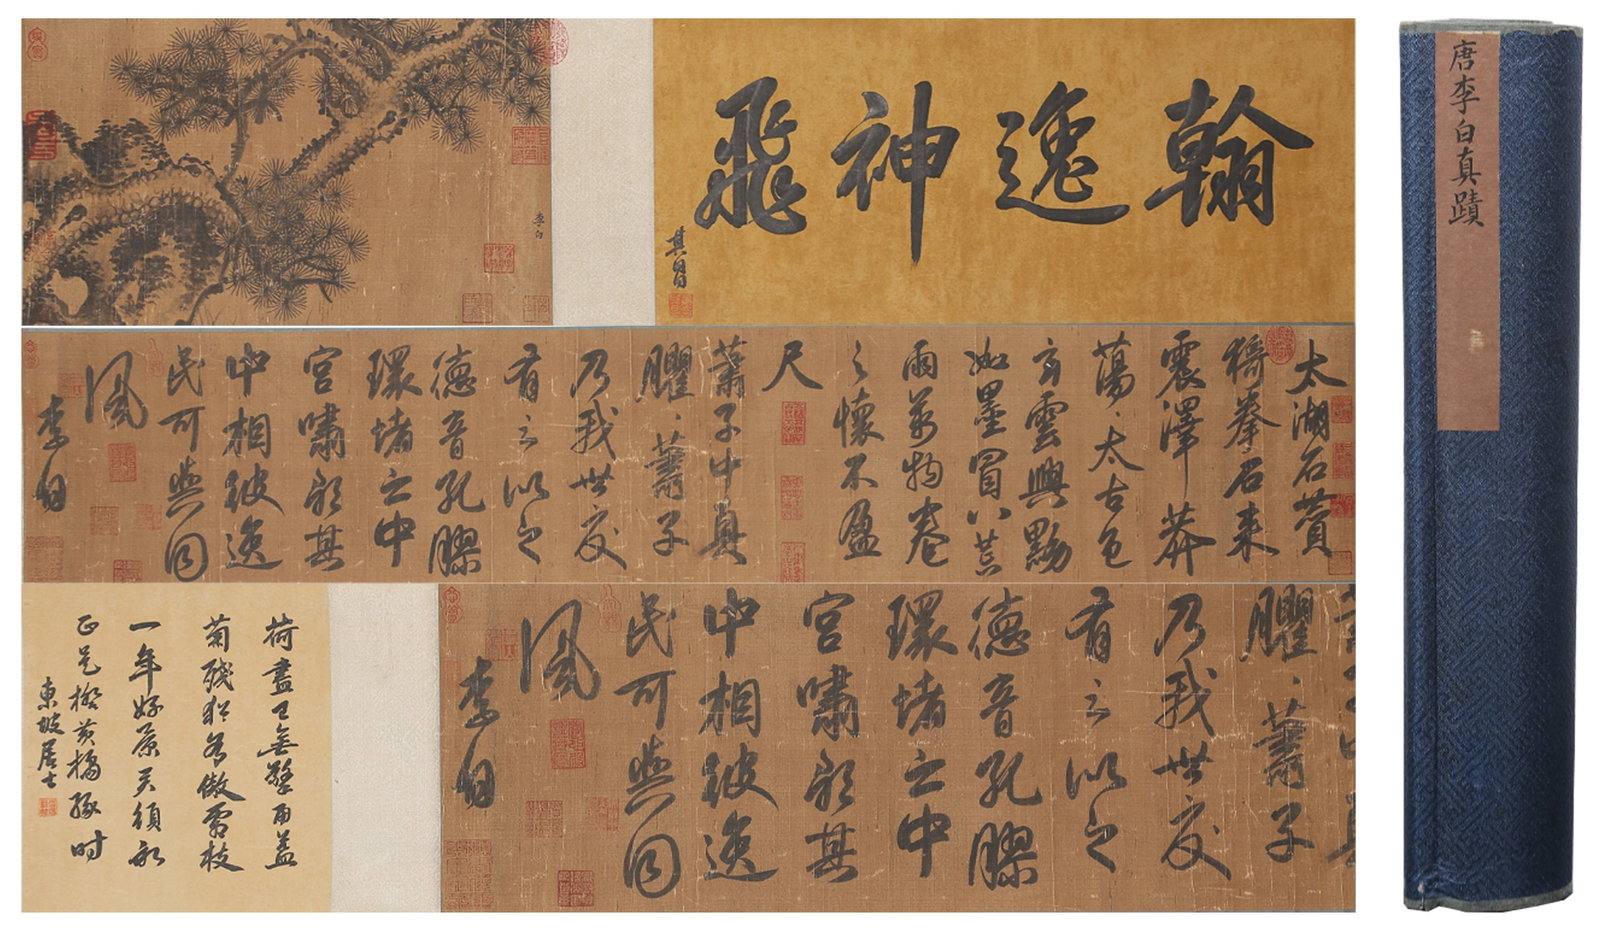 翰逸神飛
其昌
李白
太湖石贊
猗拳石来
震澤莽
蕩、太古色
玄雲興黝
如墨冒八荒
雨萬物卷
之懷不盈
尺
蕭子中真
臞、蕭子
乃我世交
有言以之
德音孔膠
環堵之中
宮嘯歌其
中相彼逸
民可與同
風
李白
臞、蕭子
乃我世交
有言以之
德音孔膠
環堵之中
宮嘯歌其
中相彼逸
民可與同
風
李白
荷盡已無擎雨蓋
菊殘猶有傲霜枝
一年好景君須記
正是橙黃橘綠時
東坡居士
唐李白真蹟